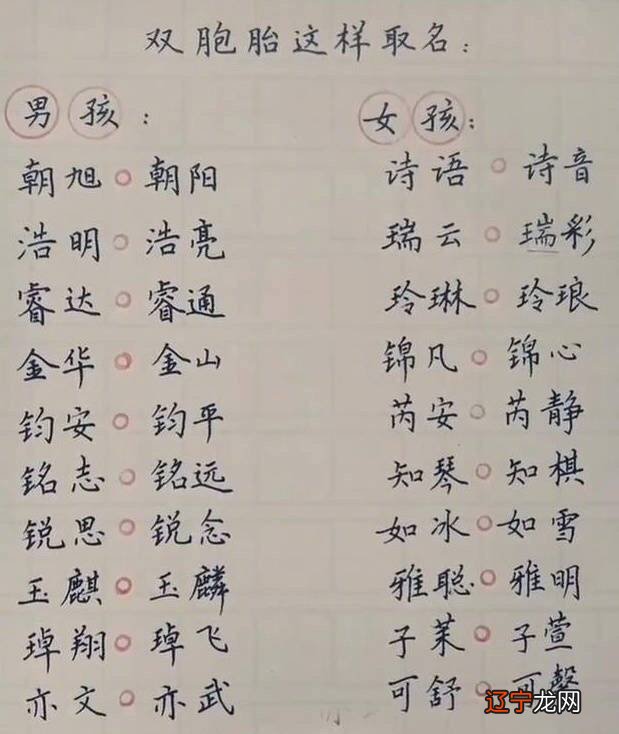 双胞胎这样取名：
男孩：
朝旭○朝阳
浩明○浩亮
睿达○睿通
金华○金山
钧安○钧平
铭志○铭远
锐思○锐念
玉麒○玉麟
琸翔○琸飞
亦文○亦武
女孩：
诗语○诗音
瑞云○瑞彩
玲琳○玲琅
锦凡○锦心
芮安○芮静
知琴○知棋
如冰○如雪
雅聪○雅明
子茉○子萱
可舒○可
辽宁龙网